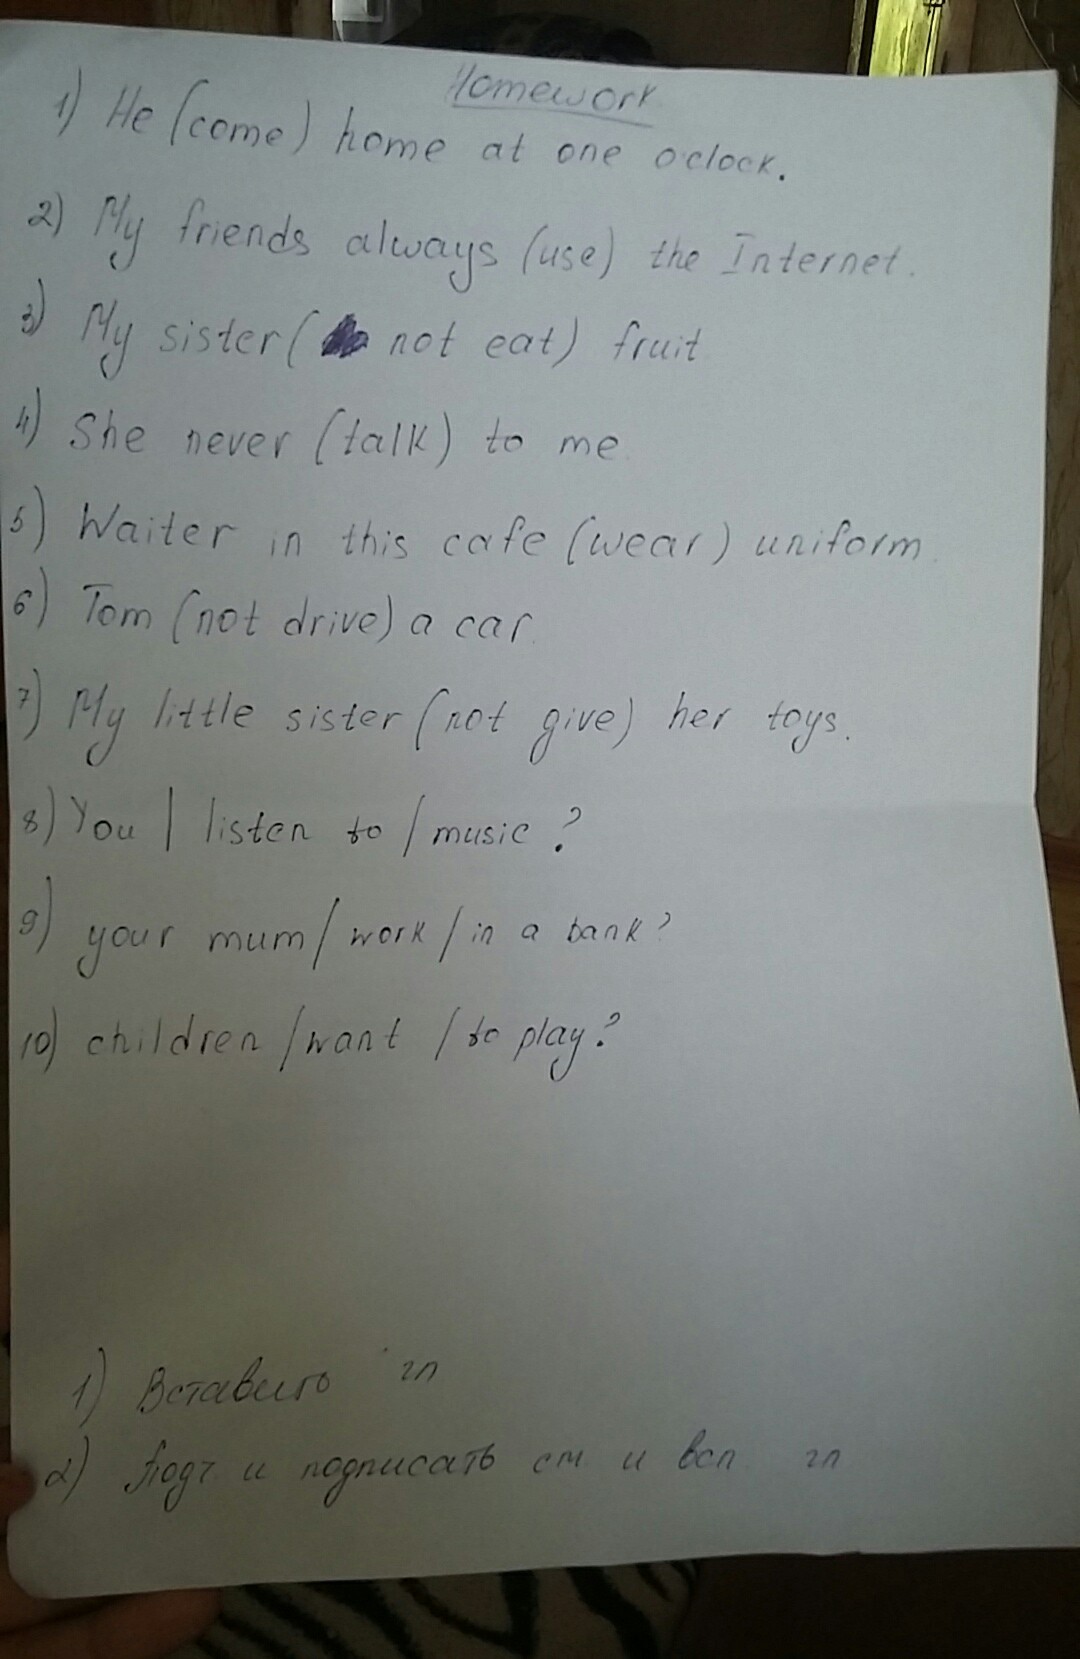 Homework
1) He (come) home at one o'clock.
2) My friends always (use) the Internet.
3) My sister ( not eat) fruit
4) She never (talk) to me.
5) Waiter in this cafe (wear) uniform
6) Tom (not drive) a car
7) My little sister (not give) her toys.
8) You / listen to / music ?
9) your mum / work / in a bank?
10) children / want / to play?
1) Вставить гл
2) Подч и подписать см и всп гл